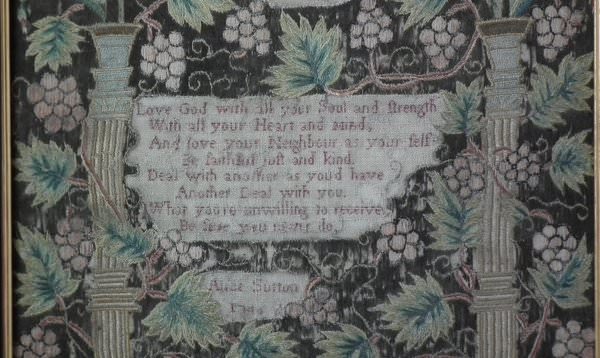 Love God with all your Soul and strength
With all your Heart and mind,
And love your Neighbour as your self
Be faithful just and kind.
Deal with another as you'd have
Another Deal with you.
What you're unwilling to receive,
Be sure you never do,
Sutton